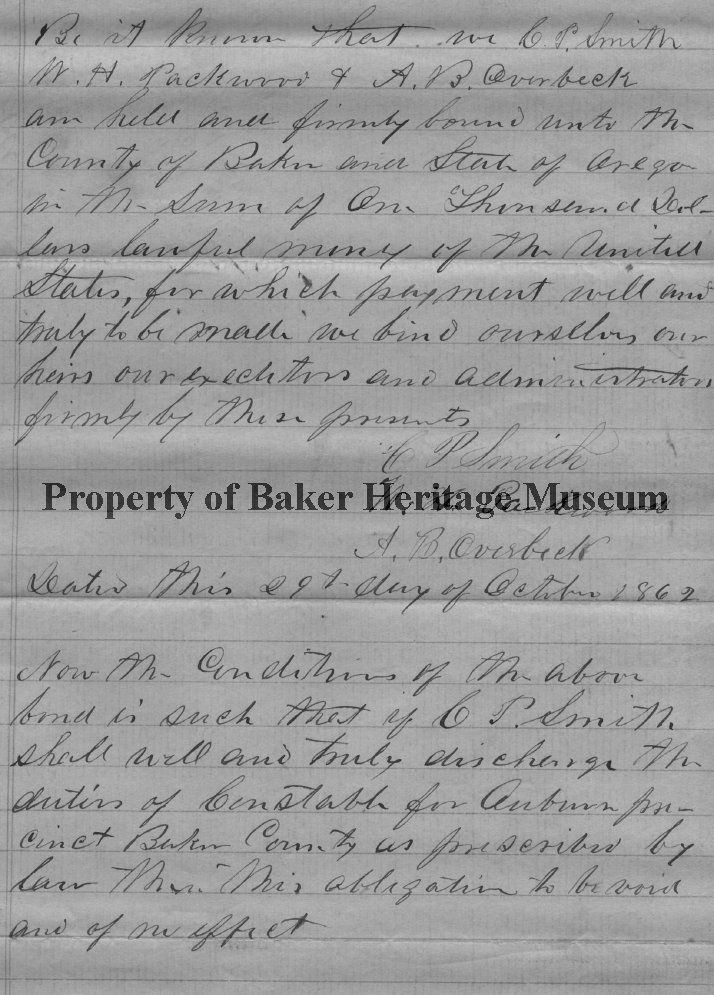 Be it known that we C. P. Smith
W. H. Packwood & A. B. Overbeck
am held and firmly bound unto the
County of Baker and State of Oregon
in the Sum of One Thousand Dol-
lars lawful money of the United
States, for which payment will and
truly to be made we bind ourselves our
heirs our executors and administrators
firmly by these presents
C P Smith
W. H. Packwood
Property of Baker Heritage Museum
A. B. Overbeck
Dated this 29th day of October 1862
Now the Conditions of the above
bond is such that if C P. Smith
shall well and truly discharge the
duties of Constable for Auburn pre-
cinct Baker County as prescribed by
law then this obligation to be void
and of no effect